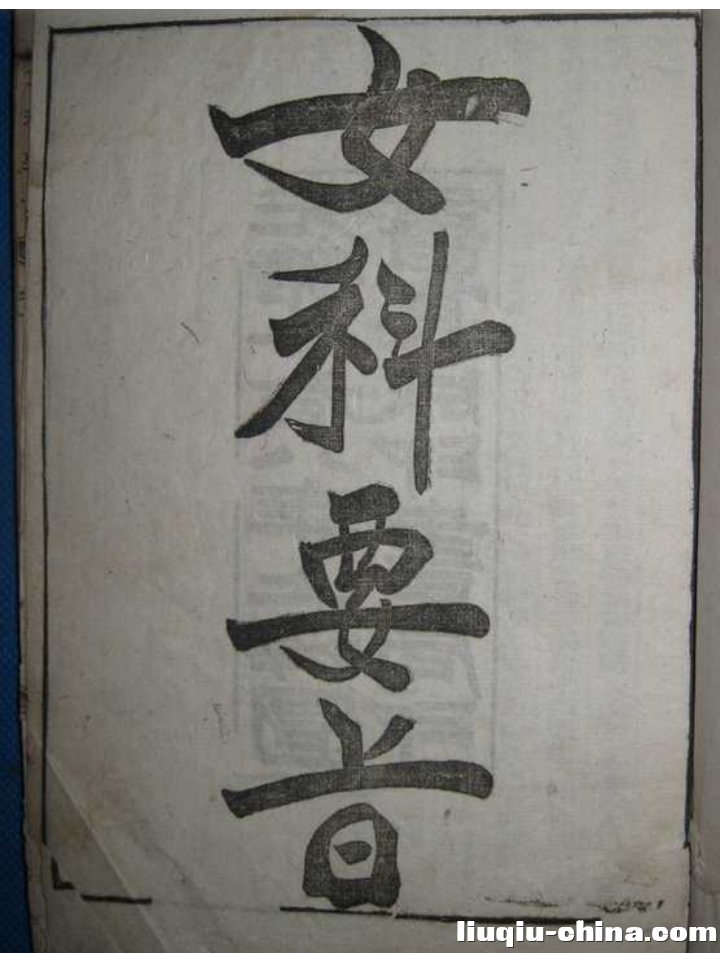 女科要旨
liuqiu-china.com